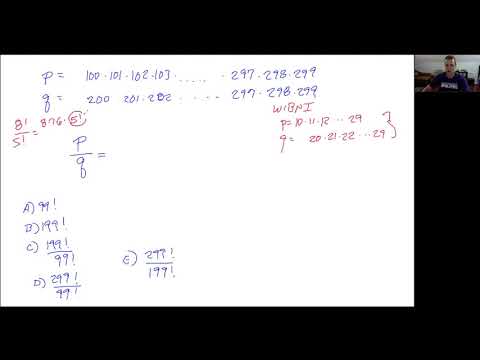 p = 100·101·102·103. ..... .. 297·298·299
q = 200 201·202 ..... 297·298·299
8!/5! = 876·5!
WIBNI
p = 10·11·12 ... 29
q = 20·21·22 ... 29
p/q =
A) 99!
B) 199!
C) 199!/99!
D) 299!/99!
E) 299!/199!